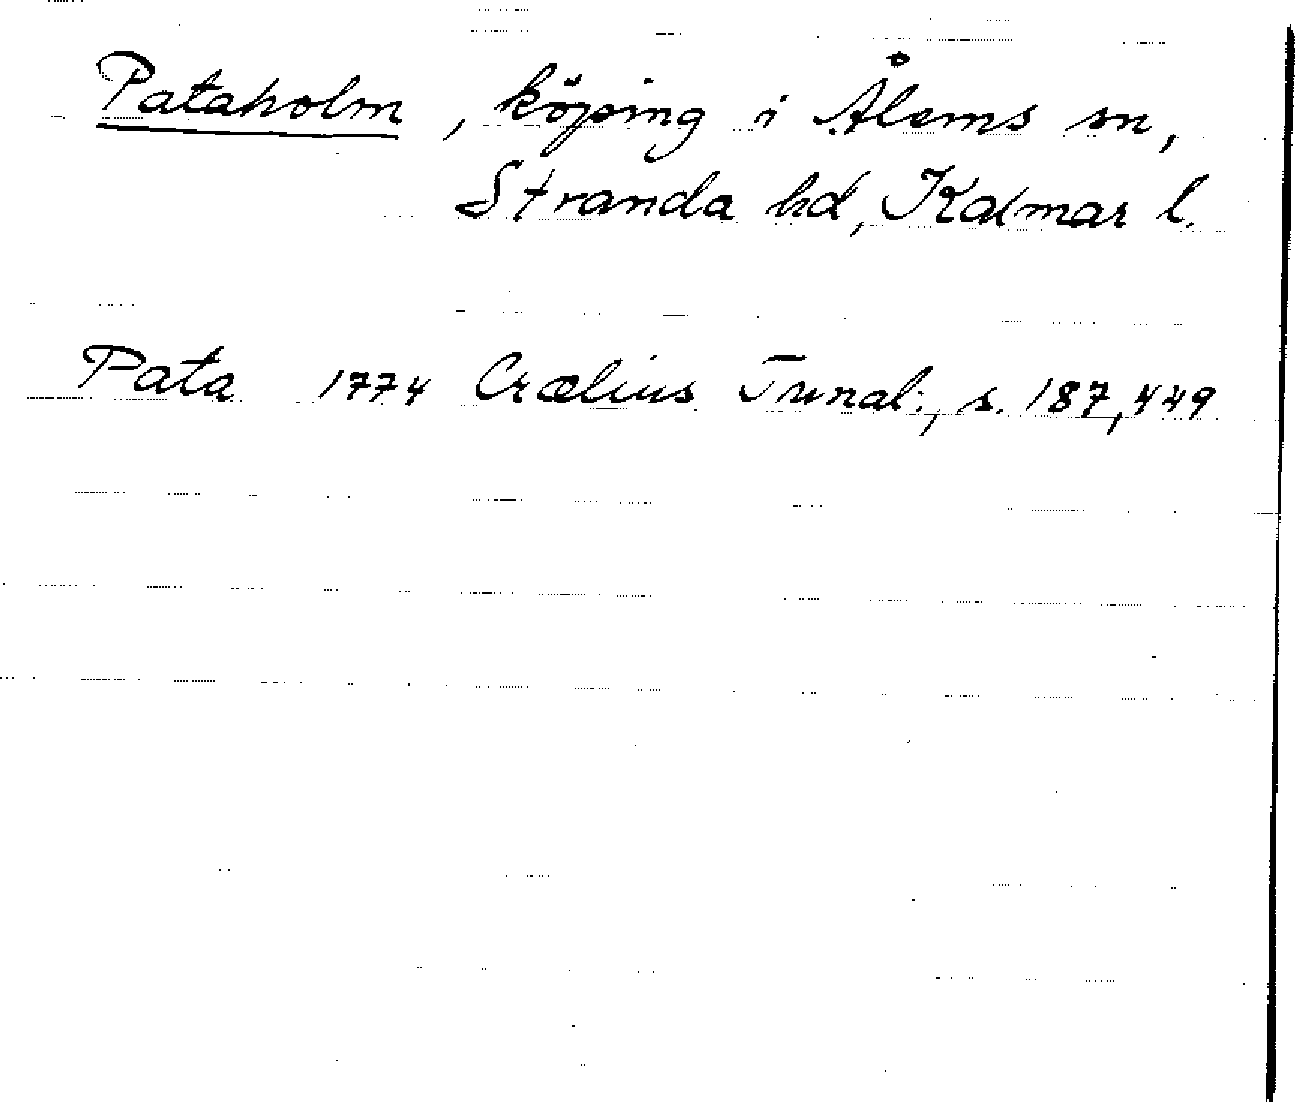 Pataholm, köping i Ålems sn,
Stranda hd, Kalmar l.
Pata 1774 Crælius Tunal., s. 187, 449